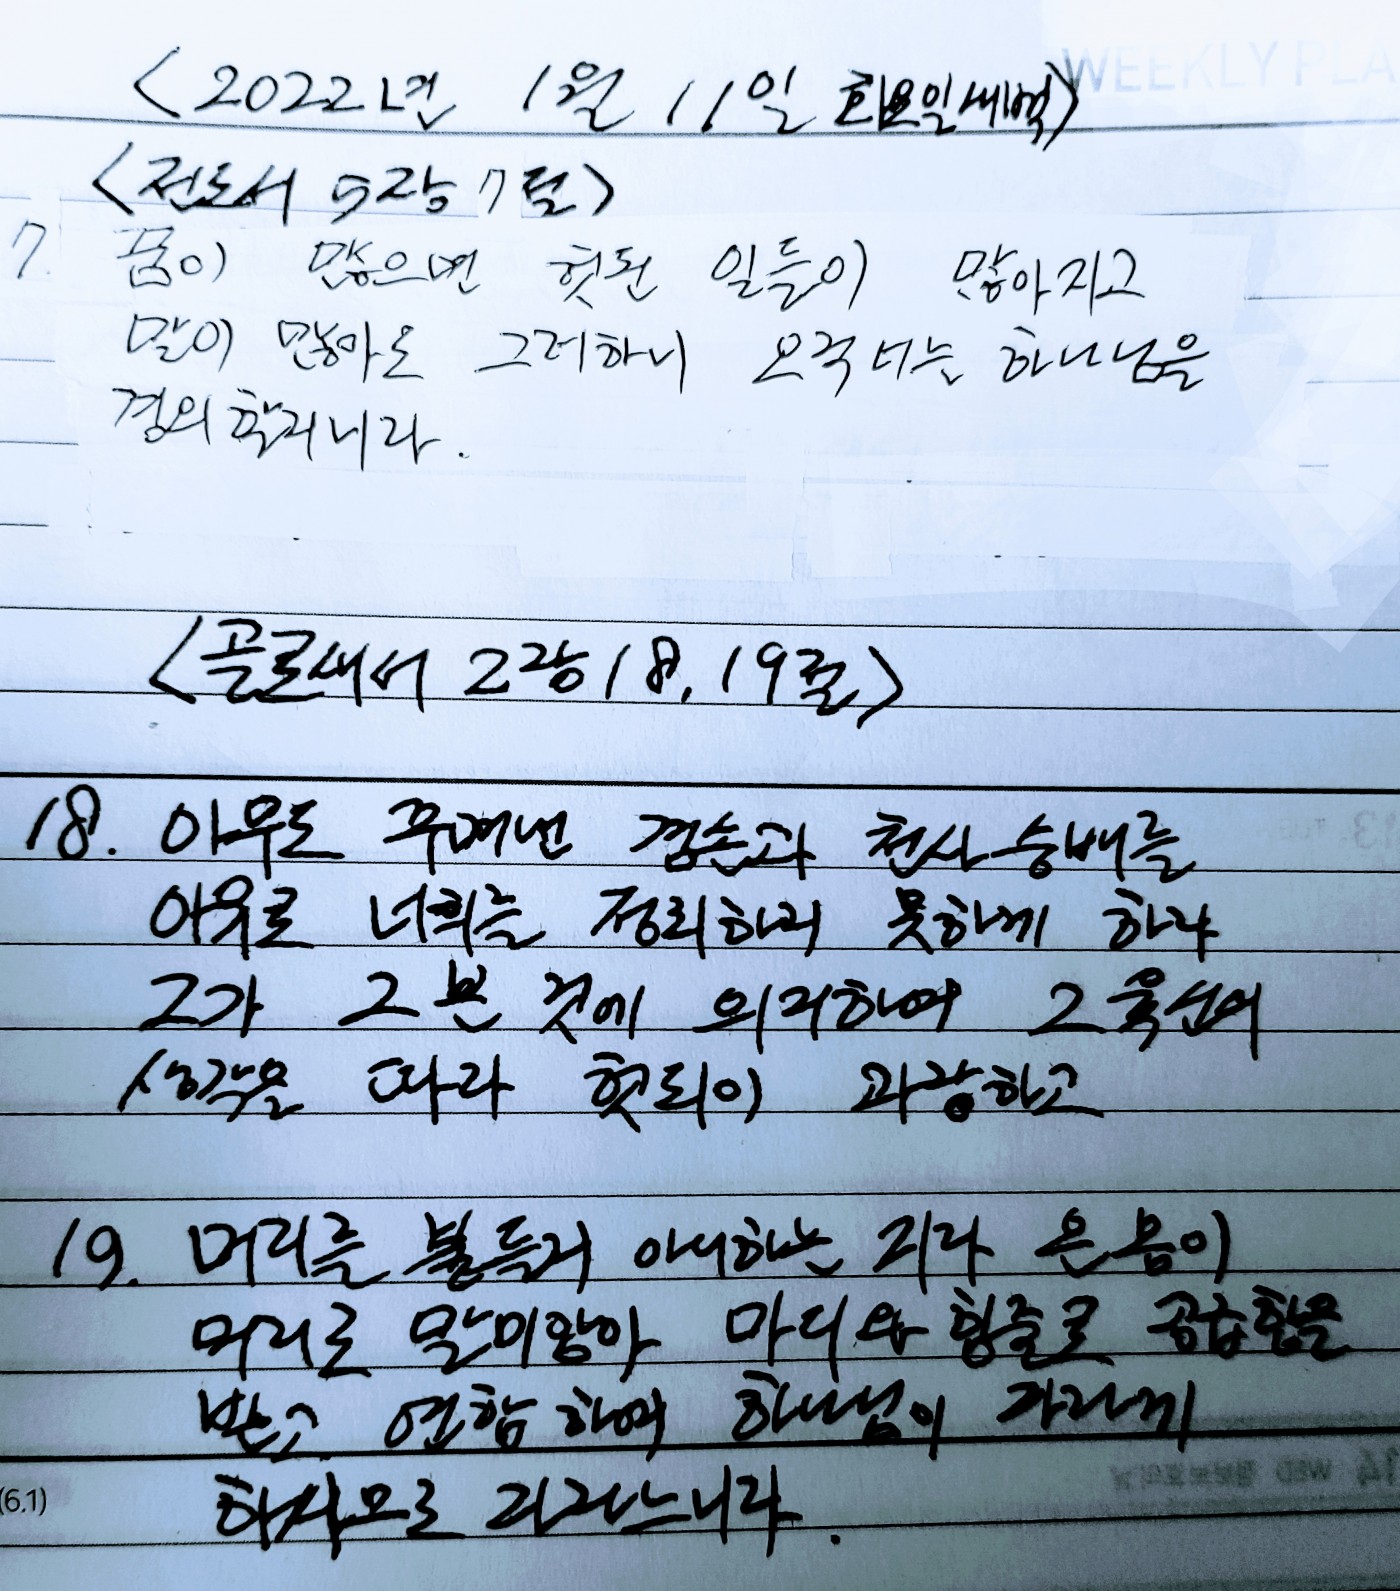 WEEKLY PLA
<2022년 1월 11일 화요일새벽>
<전도서 5장 7절>
7. 꿈이 많으면 헛된 일들이 많아지고
말이 많아도 그러하니 오직 너는 하나님을
경외할지니라.
<골로새서 2장 18, 19절>
18. 아무도 꾸며낸 겸손과 천사 숭배를
이유로 너희를 정죄하지 못하게 하라
그가 그 본 것에 의지하여 그 육신의
생각을 따라 헛되이 과장하고
19. 머리를 붙들지 아니하는 자라 온 몸이
머리로 말미암아 마디와 힘줄로 공급함을
받고 연합하여 하나님이 자라게
하시므로 자라느니라.
(6.1)